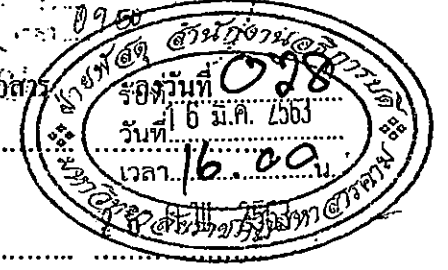 0950
ฝ่ายพัสดุ สำนักงานอธิการบดี
รองวันที่ 078
วันที่ 16 มิ.ค. 2563
เวลา 16.00 น.
มหาวิทยาลัยราชภัฏมหาสารคาม